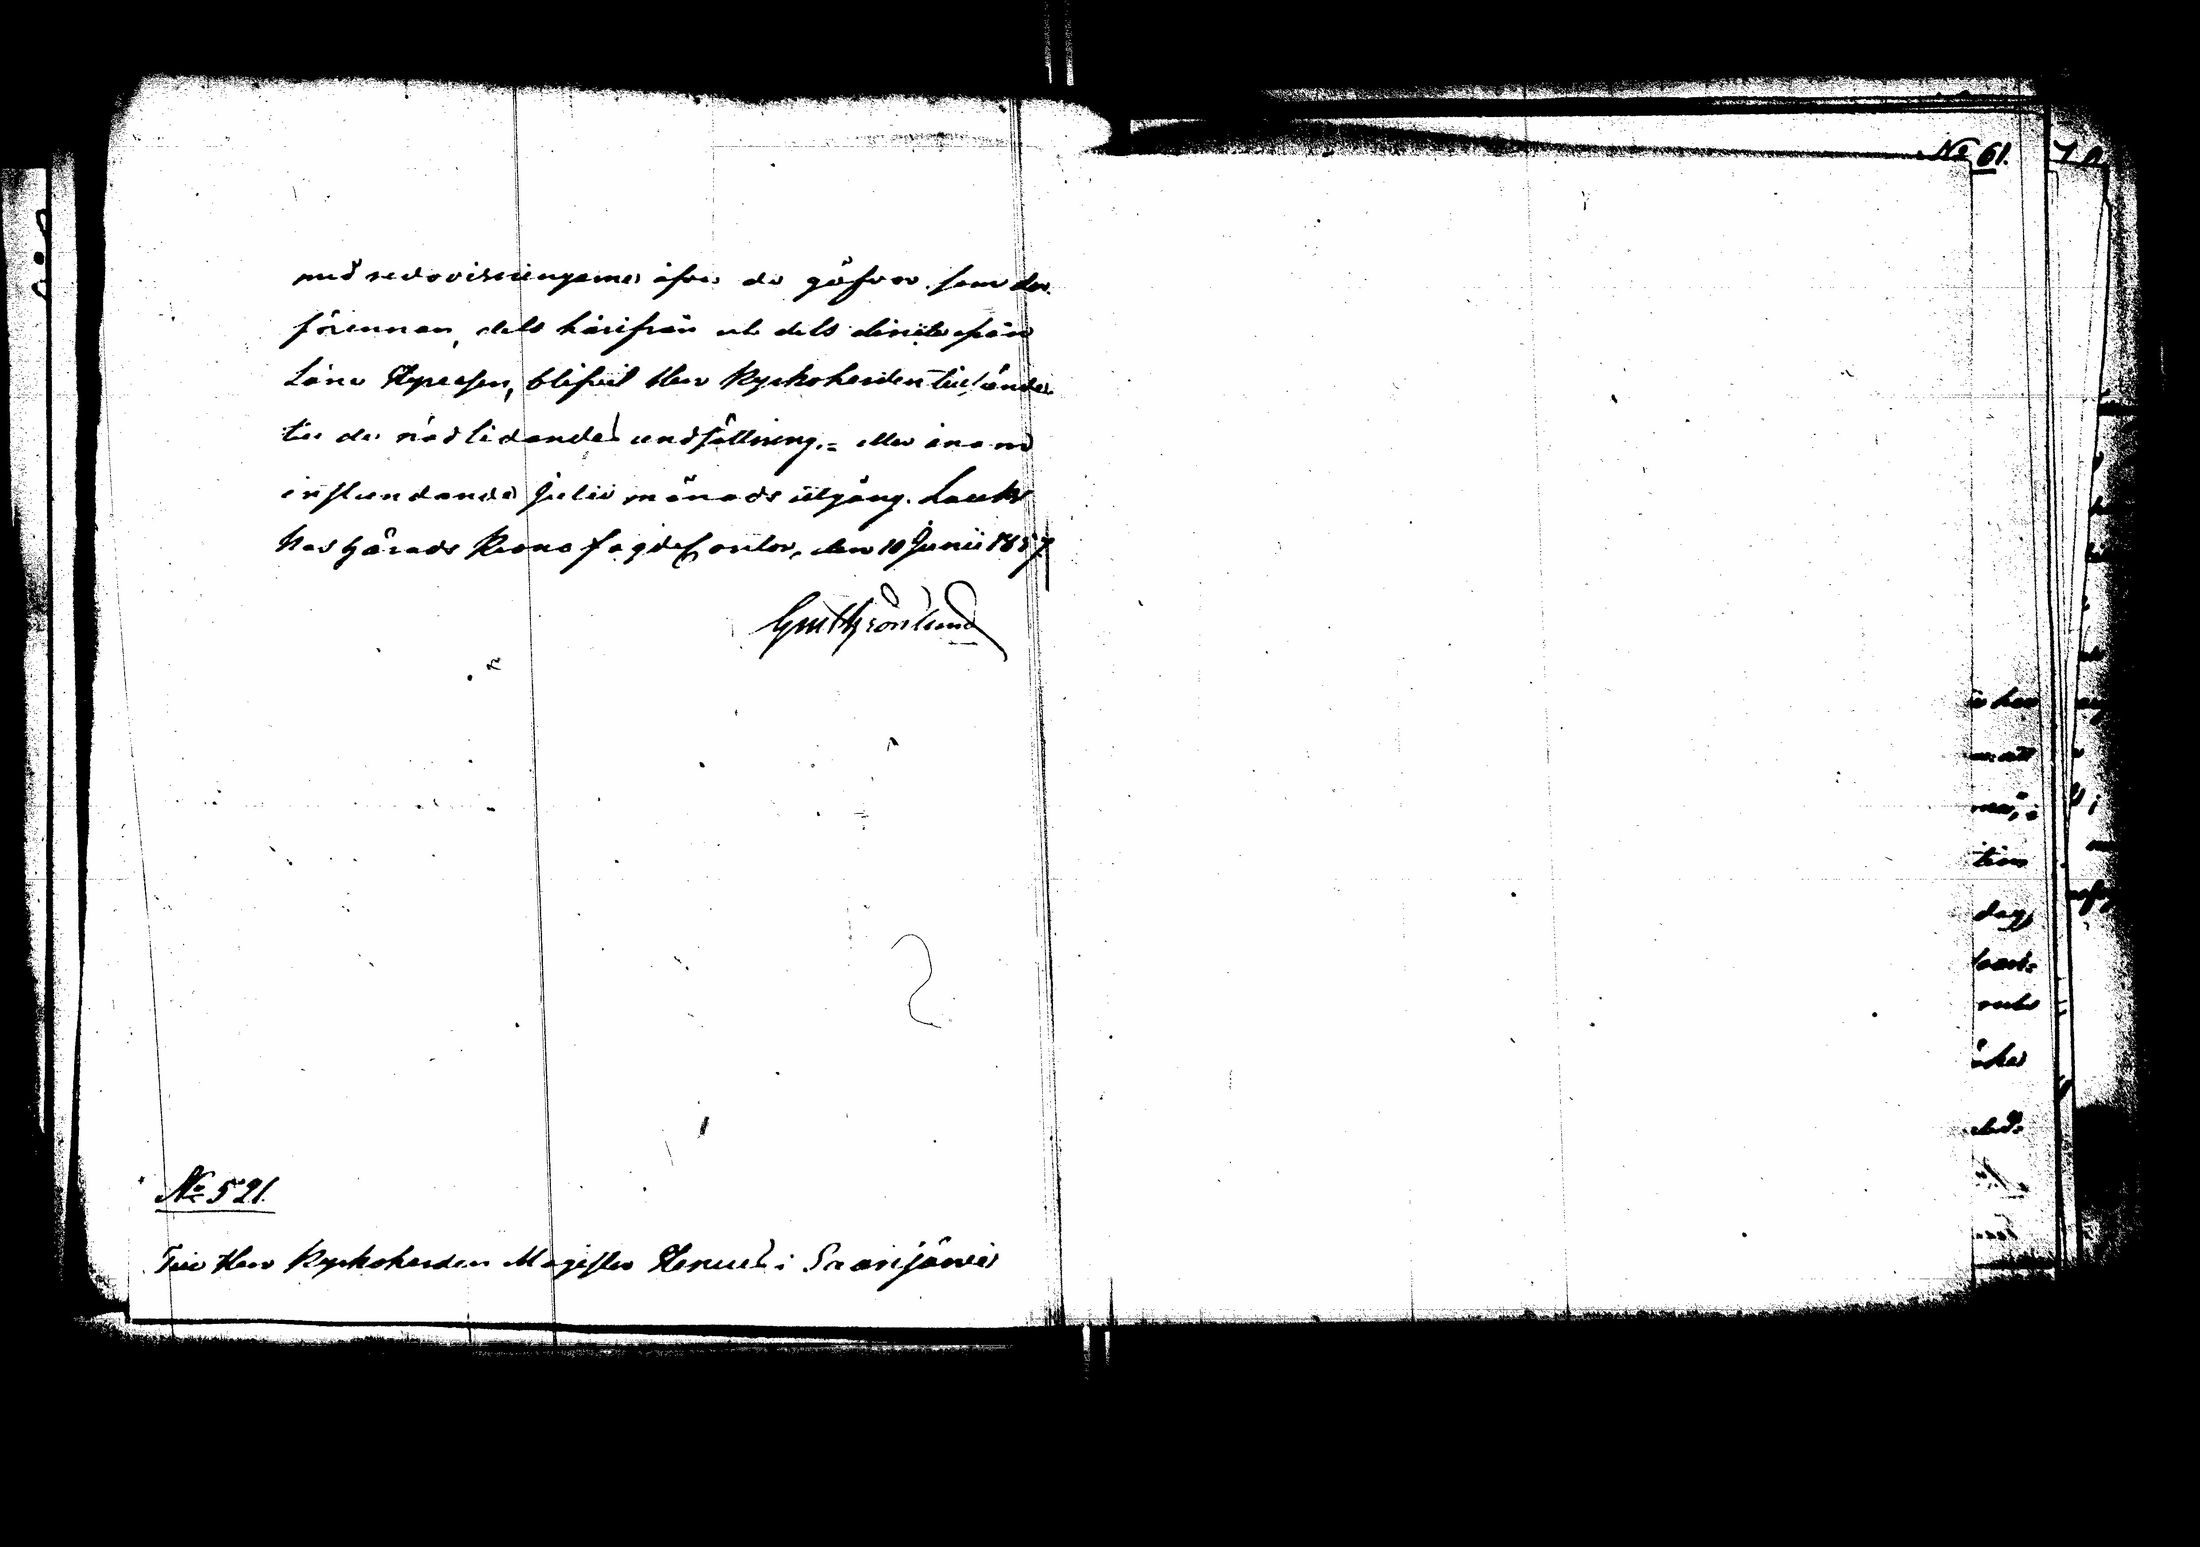 med redovisningarne öfver de gåfvor som der
förinnan, dels härifrån och dels directe från
Läne Styrelsen, blifvit Herr Kyrkoherden tillsände
till de nödlidandes undsättning, - eller inom
instundande Julii månads utgång. Lauk
kas Härads Krono fogde Contor, den 10 Junii 1857
Gust Grönlund
No 521.
Till Herr Kyrkoherden Magister i Saarijärvi
No 61.
har
att
tion
dag